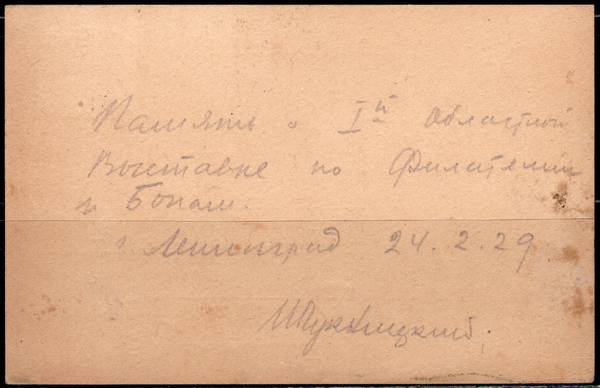 Память о Iй Областной
Выставке по Филателии
и Бонам.
г Ленинград 24.2.29